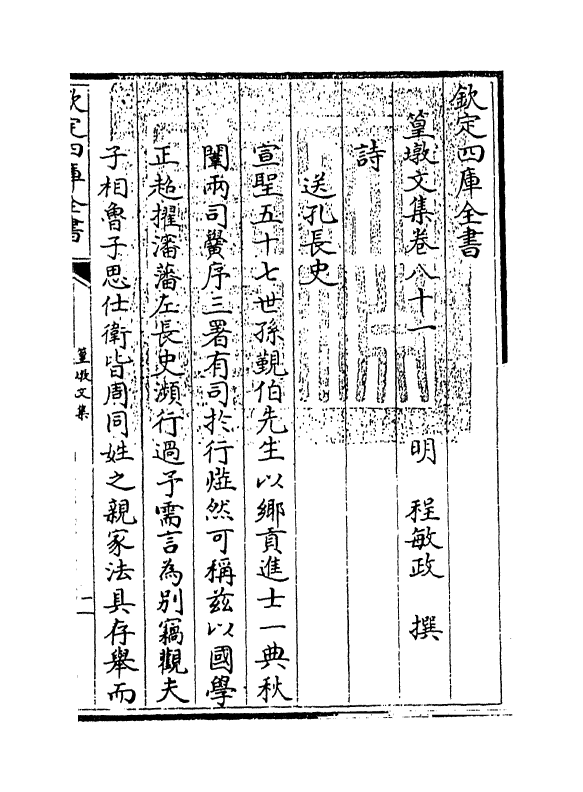 欽定四庫全書
篁墩文集卷八十一
明　程敏政　撰
詩
送孔長史
宣聖五十七世孫覲伯先生以鄉貢進士一典秋
闈兩司黌序三署有司於行燁然可稱茲以國學
正超擢瀋藩左長史瀕行過予需言為別竊觀夫
子相魯子思仕衛皆周同姓之親家法具存舉而
欽定四庫全書
篁墩文集
一